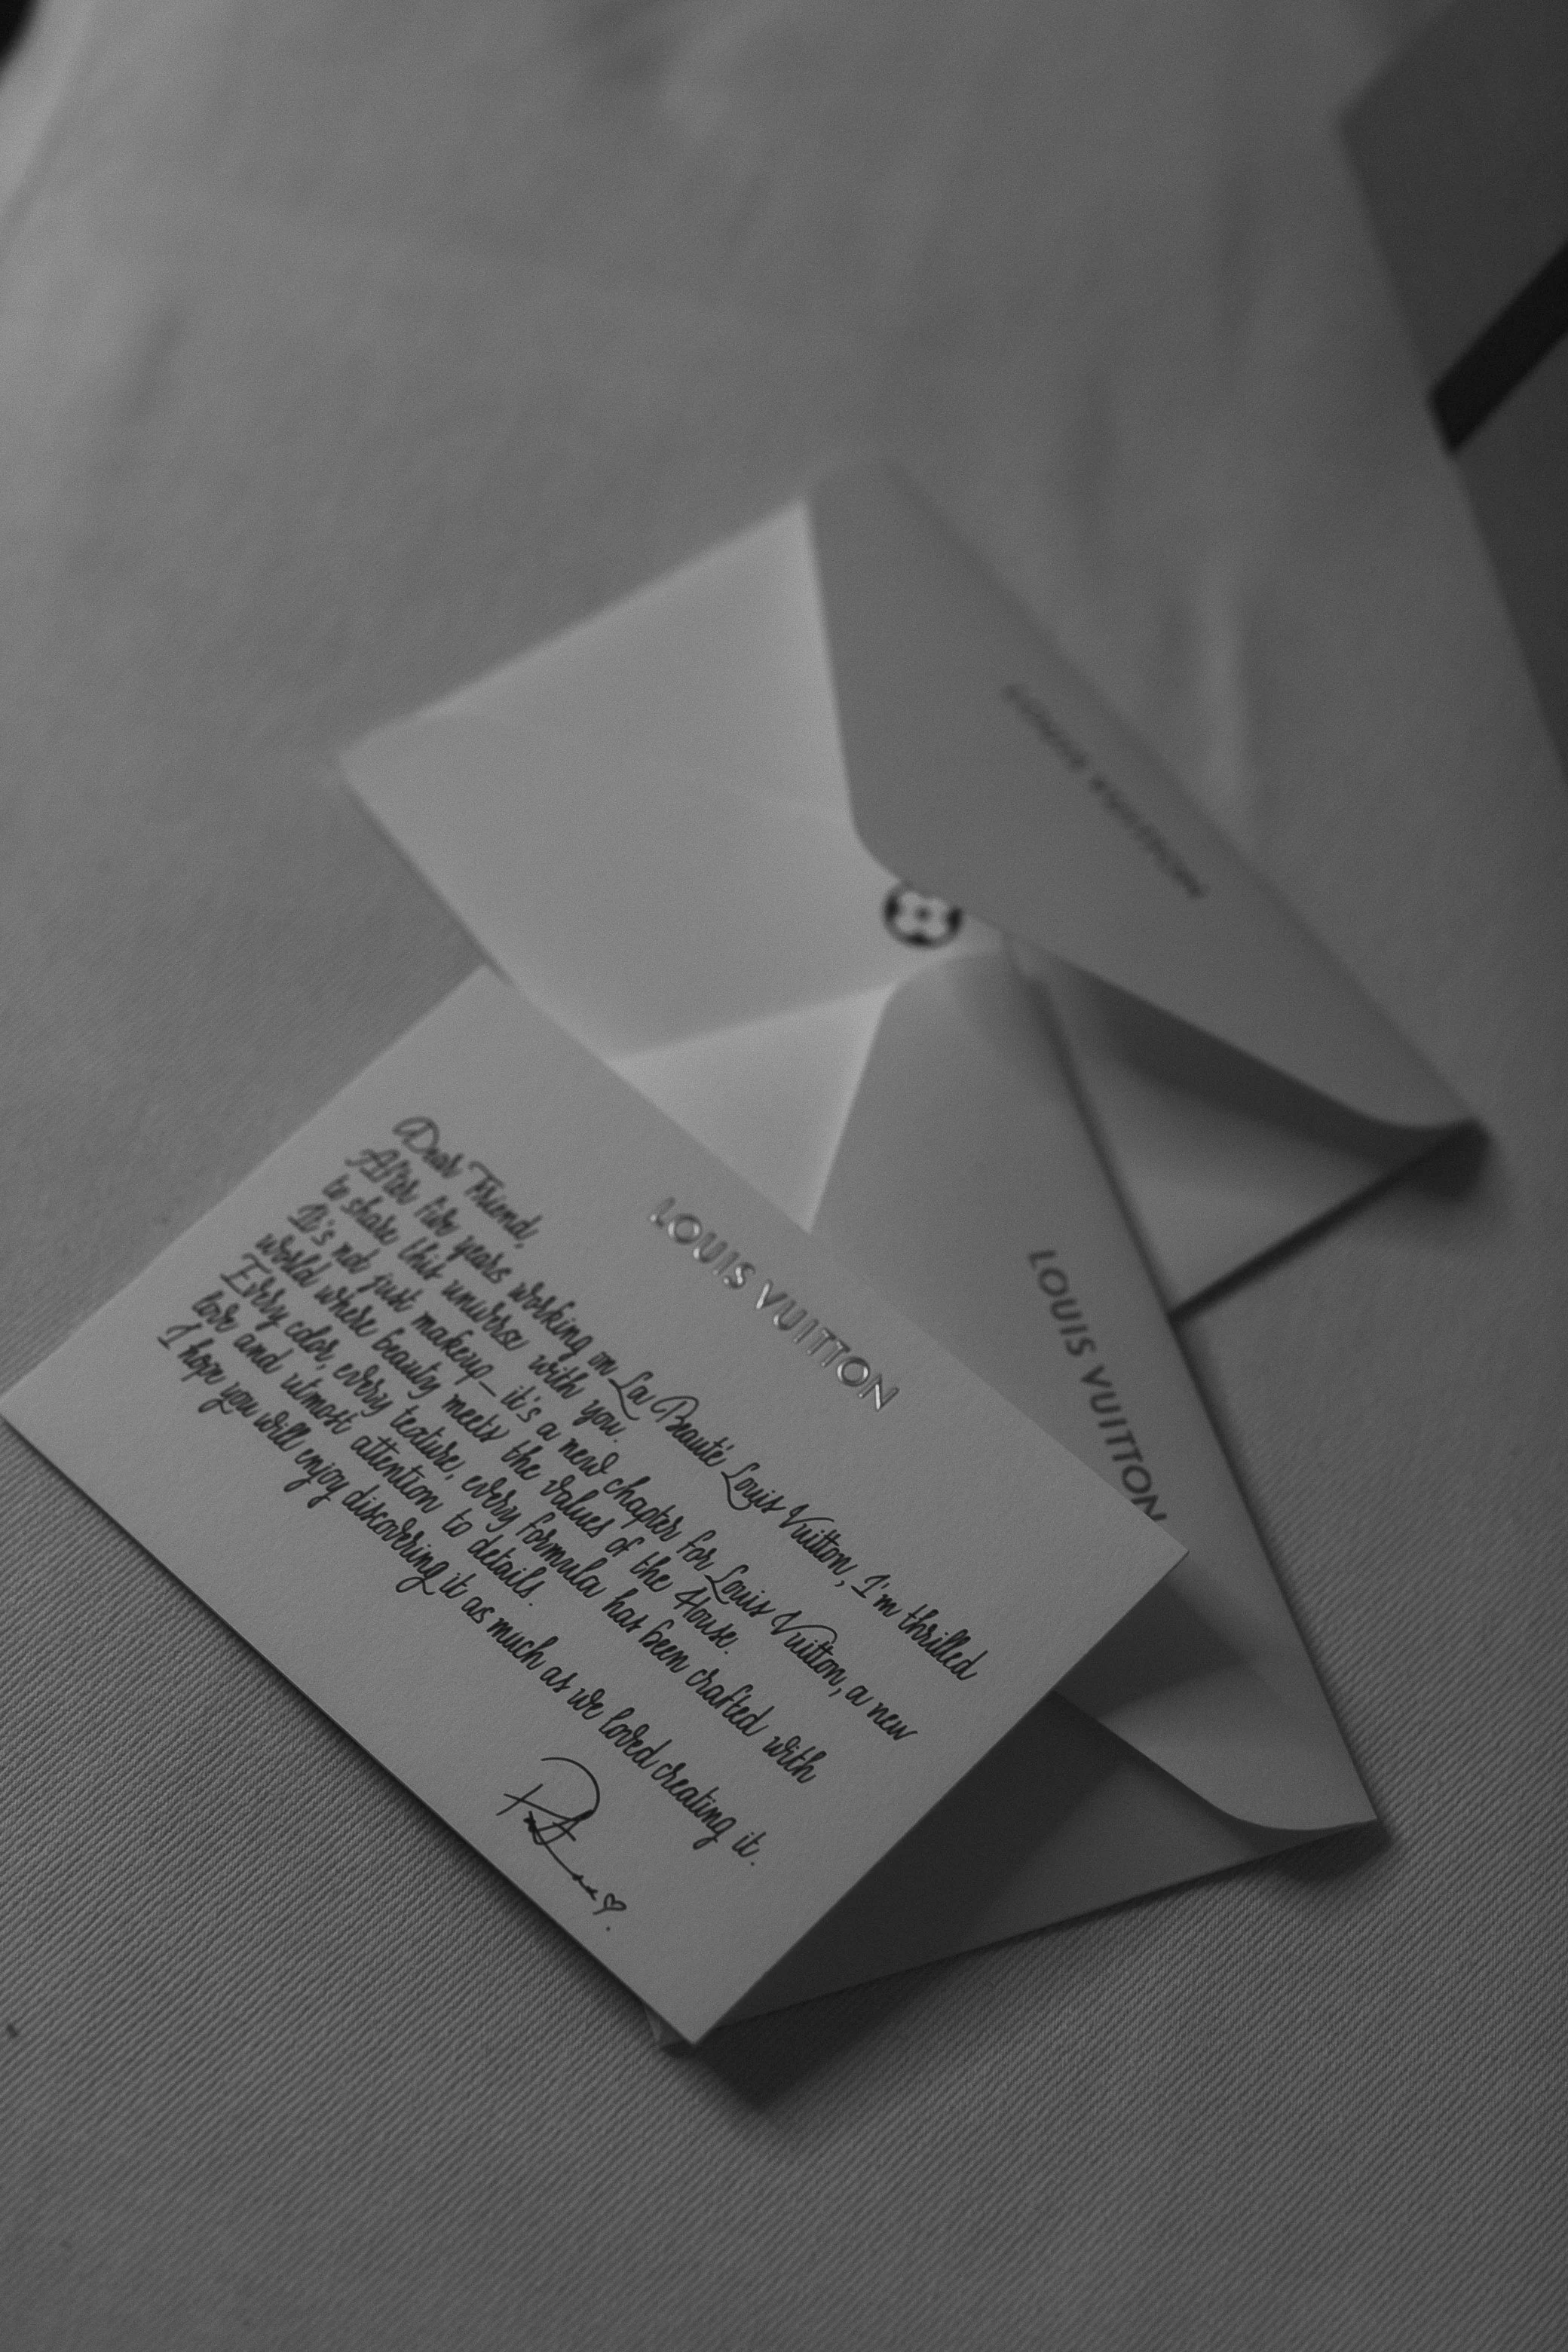 LOUIS VUITTON
Dear Friend,
After five years working on La Beauté Louis Vuitton, I'm thrilled
to share this universe with you.
It's not just makeup—it's a new chapter for Louis Vuitton, a new
world where beauty meets the values of the House.
Every color, every texture, every formula has been crafted with
love and utmost attention to details.
I hope you will enjoy discovering it as much as we loved creating it.
LOUIS VUITTON
LOUIS VUITTON